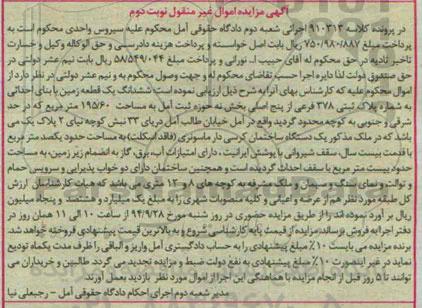 آگهی مزایده اموال غیر منقول نوبت دوم
در پرونده کلاسه ۹۱۰۳۱۳ اجرائی شعبه دوم دادگاه حقوقی آمل محکوم علیه سیروس واحدی محکوم است به
پرداخت مبلغ ۷۵۰/۹۸۰/۸۸۷ ریال بابت اصل خواسته و پرداخت هزینه دادرسی و حق الوکاله وکیل و خسارت
تاخیر تادیه در حق محکوم له آقای حبیب ا.. نورانی و پرداخت مبلغ ۵۸/۵۴۹/۰۴۴ ریال بابت نیم عشر دولتی در
حق صندوق دولت لذا دایره اجرا حسب تقاضای محکوم له و جهت وصول محکوم به و نیم عشر دولتی در نظر دارد از
اموال محکوم علیه که کارشناس بهای آنرا به شرح ذیل ارزیابی نموده است: ششدانگ یک قطعه زمین با بنای احداثی
به شماره پلاک ثبتی ۳۷۸ فرعی از پنج اصلی بخش نه حوزه ثبت آمل به مساحت ۱۹۵/۶۰ متر مربع که در حد
شرقی و جنوبی به کوچه محدود گردید واقع در آمل خیابان طالب آمل دریای ۳۳ نبش کوچه نیای ۲ پلاک یک می
باشد که در ملک مذکور یک دستگاه ساختمان کرسی دار ماسونری (فاقد اسکلت) به مساحت حدود یکصد متر مربع
با قدمت بیست سال، سقف شیروانی با پوشش ایرانیت، دارای امتیازات آب، برق، گاز به انضمام زیر زمین، به مساحت
حدود بیست متر مربع با سقف احداث گردیده است و همچنین ساختمان دارای دو خواب پذیرایی و سرویس حمام
و توالت و نمای سنگ و سیمان و ملک مشرفه به کوچه های ۸ و ۱۲ متری می باشد که هیات کارشناسان ارزش
کل طبقه مورد نظر هم از عرصه و اعیانی و کلیه منصوبات شهری را به مبلغ یک میلیارد و هشتصد و پنجاه میلیون
ریال برآورد نموده اند را از طریق مزایده حضوری در روز شنبه مورخ ۹۴/۹/۲۸ از ساعت ۱۰ الی ۱۱ همان روز در
دفتر اجرا به فروش برساند مزایده از قیمت پایه کارشناسی شروع و به بالاترین قیمت پیشنهادی فروخته خواهد شد.
برنده مزایده می بایست ۱۰٪ مبلغ پیشنهادی را به حساب دادگستری آمل واریز و الباقی را ظرف مدت یکماه تودیع
نماید در غیر اینصورت ۱۰٪ مبلغ پیشنهادی به نفع دولت ضبط و مزایده تجدید می گردد. طالبین و خریداران می
توانند تا ۵ روز قبل از انجام مزایده با هماهنگی این اجرا از اموال مورد نظر بازدید بعمل آورند.
مدیر شعبه دوم اجرای احکام دادگاه حقوقی آمل - رجبعلی نیا